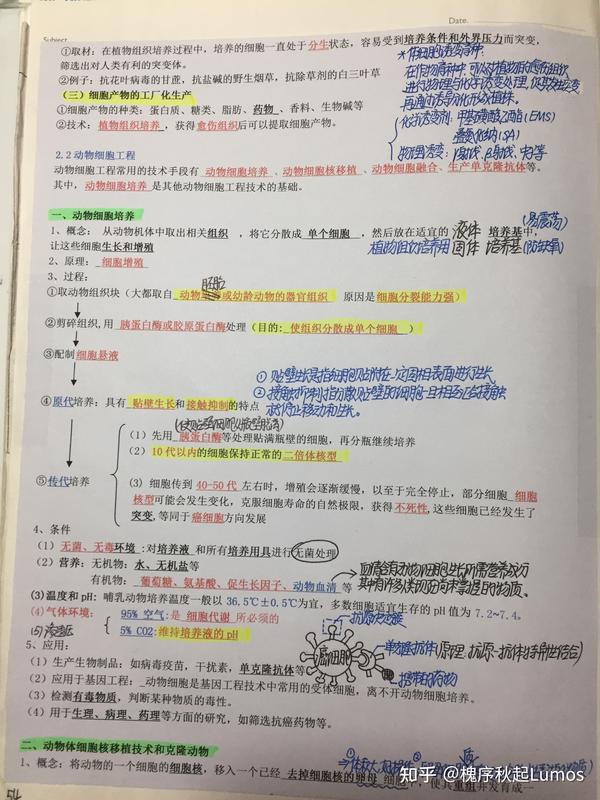 Date.
①取材：在植物组织培养过程中，培养的细胞一直处于分生状态，容易受到培养条件和外界压力而突变，
筛选出对人类有利的突变体。
②例子：抗花叶病毒的甘蔗，抗盐碱的野生烟草，抗除草剂的白三叶草
(三) 细胞产物的工厂化生产
①细胞产物的种类：蛋白质、糖类、脂肪、药物、香料、生物碱等
②技术：植物组织培养，获得愈伤组织后可以提取细胞产物。
再通过诱导分化形成植株。
化学诱变剂：甲基磺酸乙酯(EMS)
叠氮化钠(SA)
2.2 动物细胞工程
动物细胞工程常用的技术手段有动物细胞培养、动物细胞核移植、动物细胞融合、生产单克隆抗体等。
其中，动物细胞培养是其他动物细胞工程技术的基础。
一、动物细胞培养
(易震荡)
1、概念：从动物机体中取出相关组织，将它分散成单个细胞，然后放在适宜的液体培养基中，
让这些细胞生长和增殖
植物组织培养用固体培养基
2、原理：细胞增殖
3、过程：
胚胎
①取动物组织块（大都取自动物或幼龄动物的器官组织 原因是细胞分裂能力强）
②剪碎组织,用胰蛋白酶或胶原蛋白酶处理（目的：使组织分散成单个细胞）
③配制细胞悬液
① 贴壁生长是指细胞贴附在一定固相表面进行生长
④原代培养：具有贴壁生长和接触抑制的特点
（1）先用胰蛋白酶等处理贴满瓶壁的细胞，再分瓶继续培养
（2）10 代以内的细胞保持正常的二倍体核型
⑤传代培养
（3）细胞传到 40-50 代左右时，增殖会逐渐缓慢，以至于完全停止，部分细胞细胞
核型可能会发生变化，克服细胞寿命的自然极限，获得不死性,这些细胞已经发生了
突变,等同于癌细胞方向发展
4、条件
（1）无菌、无毒环境：对培养液和所有培养用具进行无菌处理
（2）营养：无机物：水、无机盐等
有机物：葡萄糖、氨基酸、促生长因子、动物血清等
(3)温度和 pH：哺乳动物培养温度一般以 36.5℃±0.5℃为宜，多数细胞适宜生存的 pH 值为 7.2~7.4。
(4)气体环境：
95% 空气：是细胞代谢所必须的
5% CO2:维持培养液的 pH
(5)渗透压
癌细胞
单克隆抗体(原理：抗原-抗体特异性结合)
携带的药物
5、应用：
（1）生产生物制品：如病毒疫苗，干扰素，单克隆抗体等
（2）应用于基因工程：动物细胞是基因工程技术中常用的受体细胞，离不开动物细胞培养。
（3）检测有毒物质，判断某种物质的毒性。
（4）用于生理、病理、药理等方面的研究，如筛选抗癌药物等。
二、动物体细胞核移植技术和克隆动物
1、概念：将动物的一个细胞的细胞核，移入一个已经去掉细胞核的卵母细胞中，使其重组并发育成一
知乎 @槐序秋起Lumos